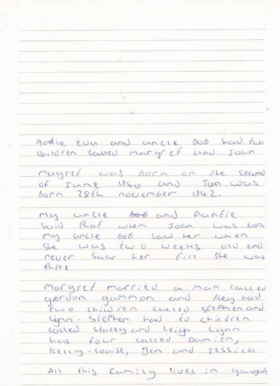 Auntie Eva and uncle Bob had two
children called margret and Joan
Margret was born on the second
of June 1940 and Joan was
born 28th november 1942.
My uncle and Auntie
said that when Joan was born
my uncle Bob saw her when
she was two weeks old and
never saw her till she was
three
Margret married a man called
gordon gammon and they had
two children called stephen and
lynn. Stephen had to children
called Stacey and leigh. Lynn
has four called Damien,
Kelly-Louise, Ben and Jessica
All this family lives in